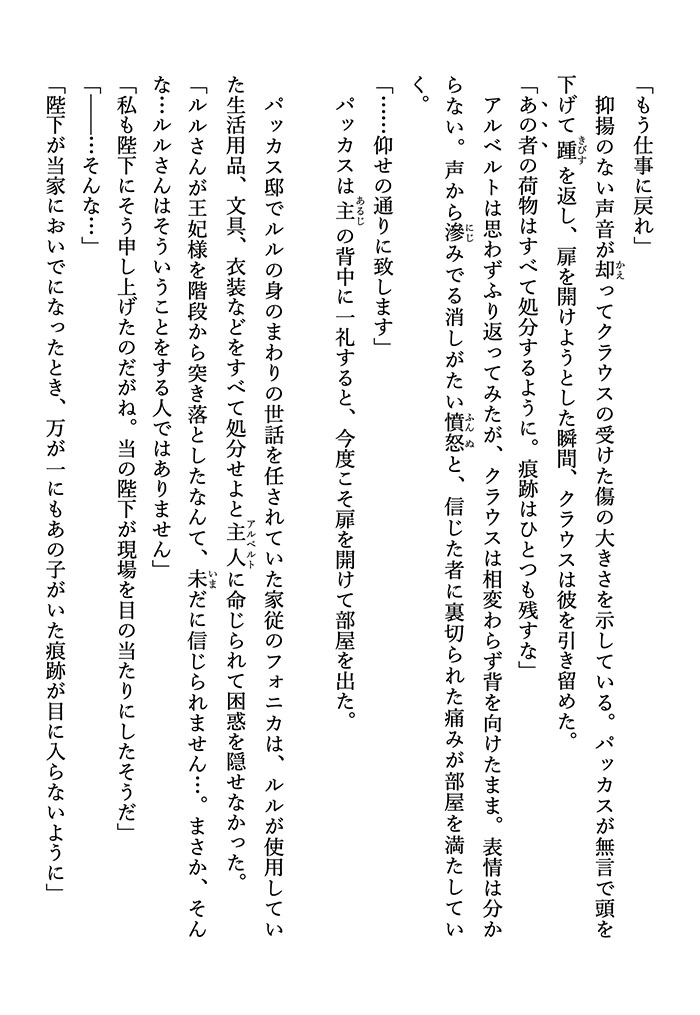 「もう仕事に戻れ」
　抑揚のない声音が却ってクラウスの受けた傷の大きさを示している。パッカスが無言で頭を
下げて踵を返し、扉を開けようとした瞬間、クラウスは彼を引き留めた。
「あの者の荷物はすべて処分するように。痕跡はひとつも残すな」
　アルベルトは思わずふり返ってみたが、クラウスは相変わらず背を向けたまま。表情は分か
らない。声から滲みでる消しがたい憤怒と、信じた者に裏切られた痛みが部屋を満たしてい
く。
「……仰せの通りに致します」
　パッカスは主の背中に一礼すると、今度こそ扉を開けて部屋を出た。
　パッカス邸でルルの身のまわりの世話を任されていた家従のフォニカは、ルルが使用してい
た生活用品、文具、衣装などをすべて処分せよと主人に命じられて困惑を隠せなかった。
「ルルさんが王妃様を階段から突き落としたなんて、未だに信じられません…。まさか、そん
な…ルルさんはそういうことをする人ではありません」
「私も陛下にそう申し上げたのだがね。当の陛下が現場を目の当たりにしたそうだ」
「――…そんな…」
「陛下が当家においでになったとき、万が一にもあの子がいた痕跡が目に入らないように」